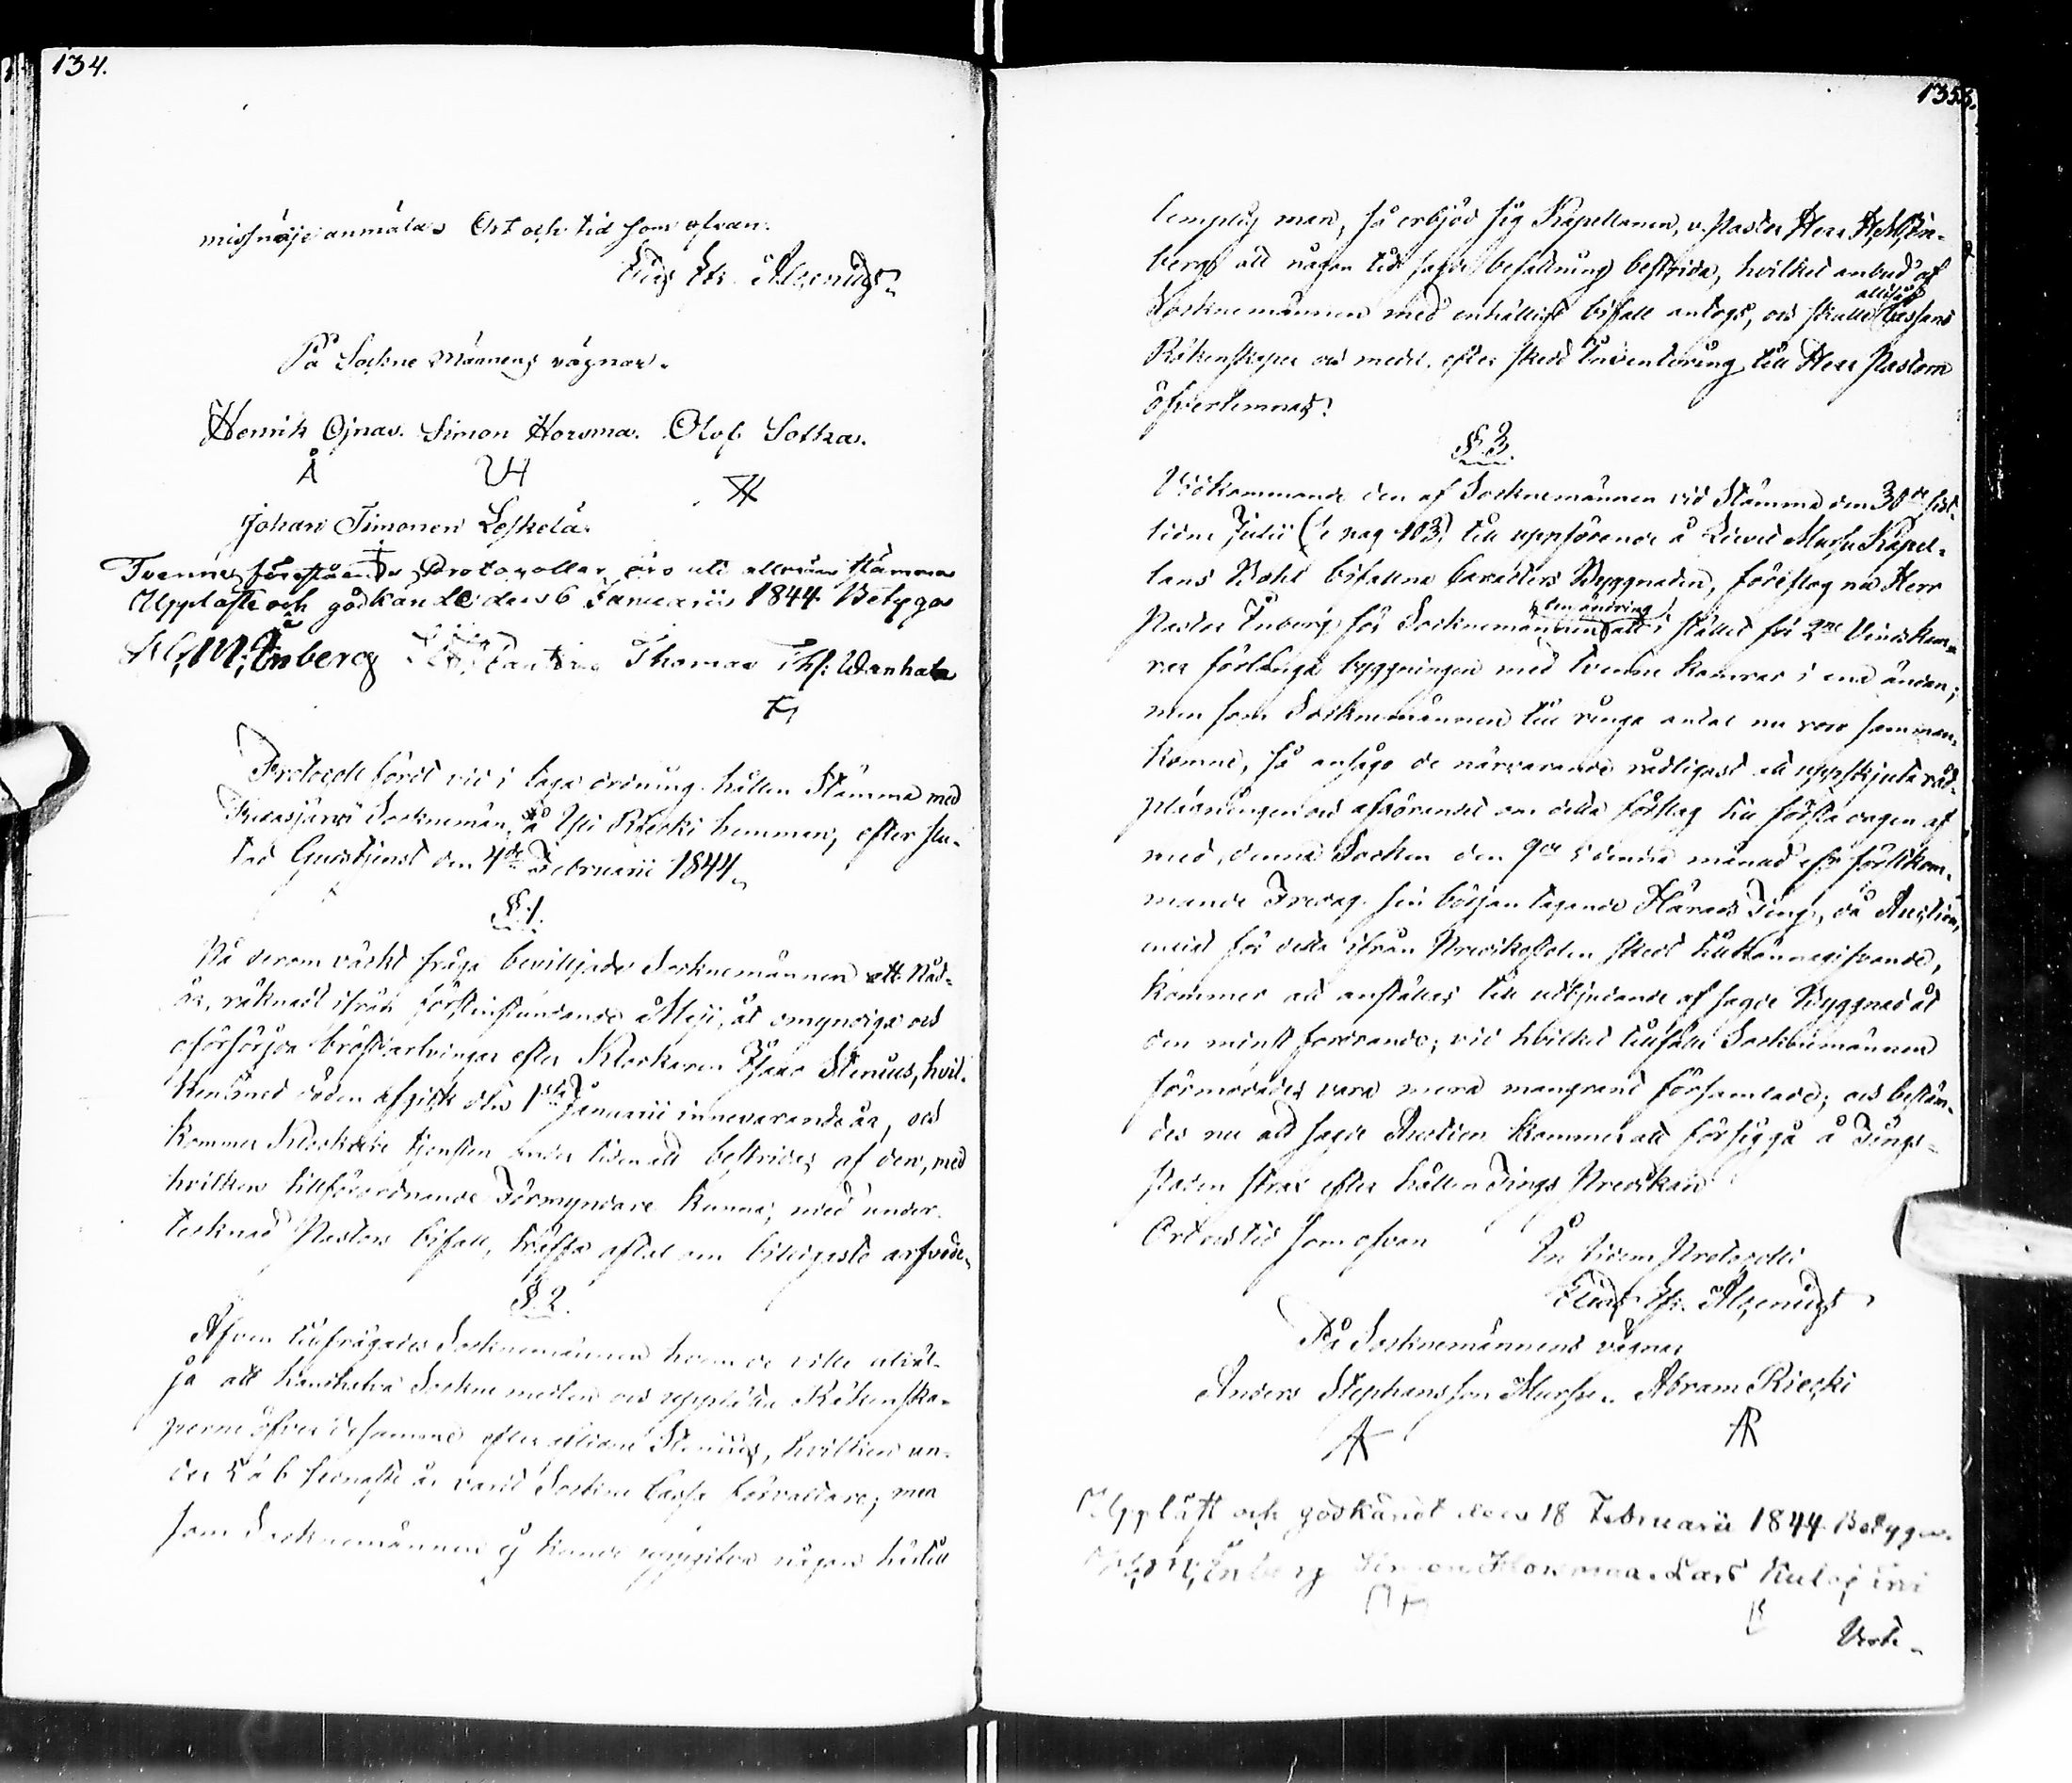 134.
missnöje anmäldes Ort och tid som ofvan.
På Sockne Männens vägnar.
Henrik Ojnas. Simon Horsma. Olof Sotka.
Johan Timonen Leskelä.
Tvenne föreståen de Protocoller äro uti allmän stämma
Uppläste och godkände den 6 Januarii 1844 Betygar
H. M. Enberg Thomas Wanhala
Protocoll fördt vid i laga ordning hållen Stämma med
Socknemän, å Yli Riecki hemman, efter slu-
tad Gudstjenst den 4de Februarii 1844.
§.1.
På derom väckt fråga beviljade Socknemännen ett Nåd-
år, räknadt ifrån förstinstundande 1 Maji, åt omyndiga och
oförsörjda bröstarfvingar efter Klockaren Isaac Stenius, hvil-
ken med döden afgick den 1sta Januarii innevarande år, och
kommer Klockare tjensten under tiden att bestridas af den, med
hvilken tillförordnande Förmyndare kunna, med under-
tecknad Pastors bifall, träffa aftal om billigaste arfvode.
§.2.
Äfven tillfrågades Socknemännen hvem de ville utväl-
ja att handhafva Sockne medlen och upprätta Räkenska-
perne öfver desamma efter aflidne Stenius, hvilken un-
der 5 à 6 sednaste år varit Sockne Cassa förvaltare; men
som Socknemännen ej kunde uppgifva någon härtill
135.
lämplig man, så erbjöd sig Kapellanen, v. Pastor Herr H. M. En-
berg att någon tid sagde befattning bestrida, hvilket anbud af
Socknemännen med enhälligt bifall antogs, och skulle alltså Cassans
Räkenskaper och medel efter skedd Inventering till Herr Pastorn
öfverlemnas.
§.3.
Vidkommande den af Socknemännen vid Stämma den 30de sist-
lidne Julii (pag 103) till uppförande å Kapel-
lans Bohl bifallna Byggnaden, föreslog nu Herr
Pastor Enberg för Socknemännen den ändring att i stället för 2ne Vindskam-
rar förlänga byggningen med tvenne kamrar i ena ändan;
men som Socknemännen till ringa antal nu voro samman-
komne, så ansågo de närvarande rådligast att uppskjuta råd-
plägningen och afgörandet om detta förslag till första dagen af
med denna Socken den 9de i denna månad förstkom-
mande Fredag sin början tagande Härads Ting, då Auction,
emist för detta ifrån Predikstolen skedt tillkännagifvande,
kommer att anställas till utbjudande af sagde Byggnad åt
den minst fordrande; vid hvilket tillfälle Socknemännen
förmodades vara mera mangrant församlade; och bestäm-
des nu att sagde Auction kommer att försiggå å Tings-
staden strax efter hållen Tings Predikan
Ort och tid som ofvan In fidem Protocolli
På Socknemännens vägnar
Anders Stephansson Abram Riecki
Uppläst och godkändt den 18 Februarii 1844 Betygar.
H. M. Enberg Simon Horsma. Lars Kulojärvi
Vert.